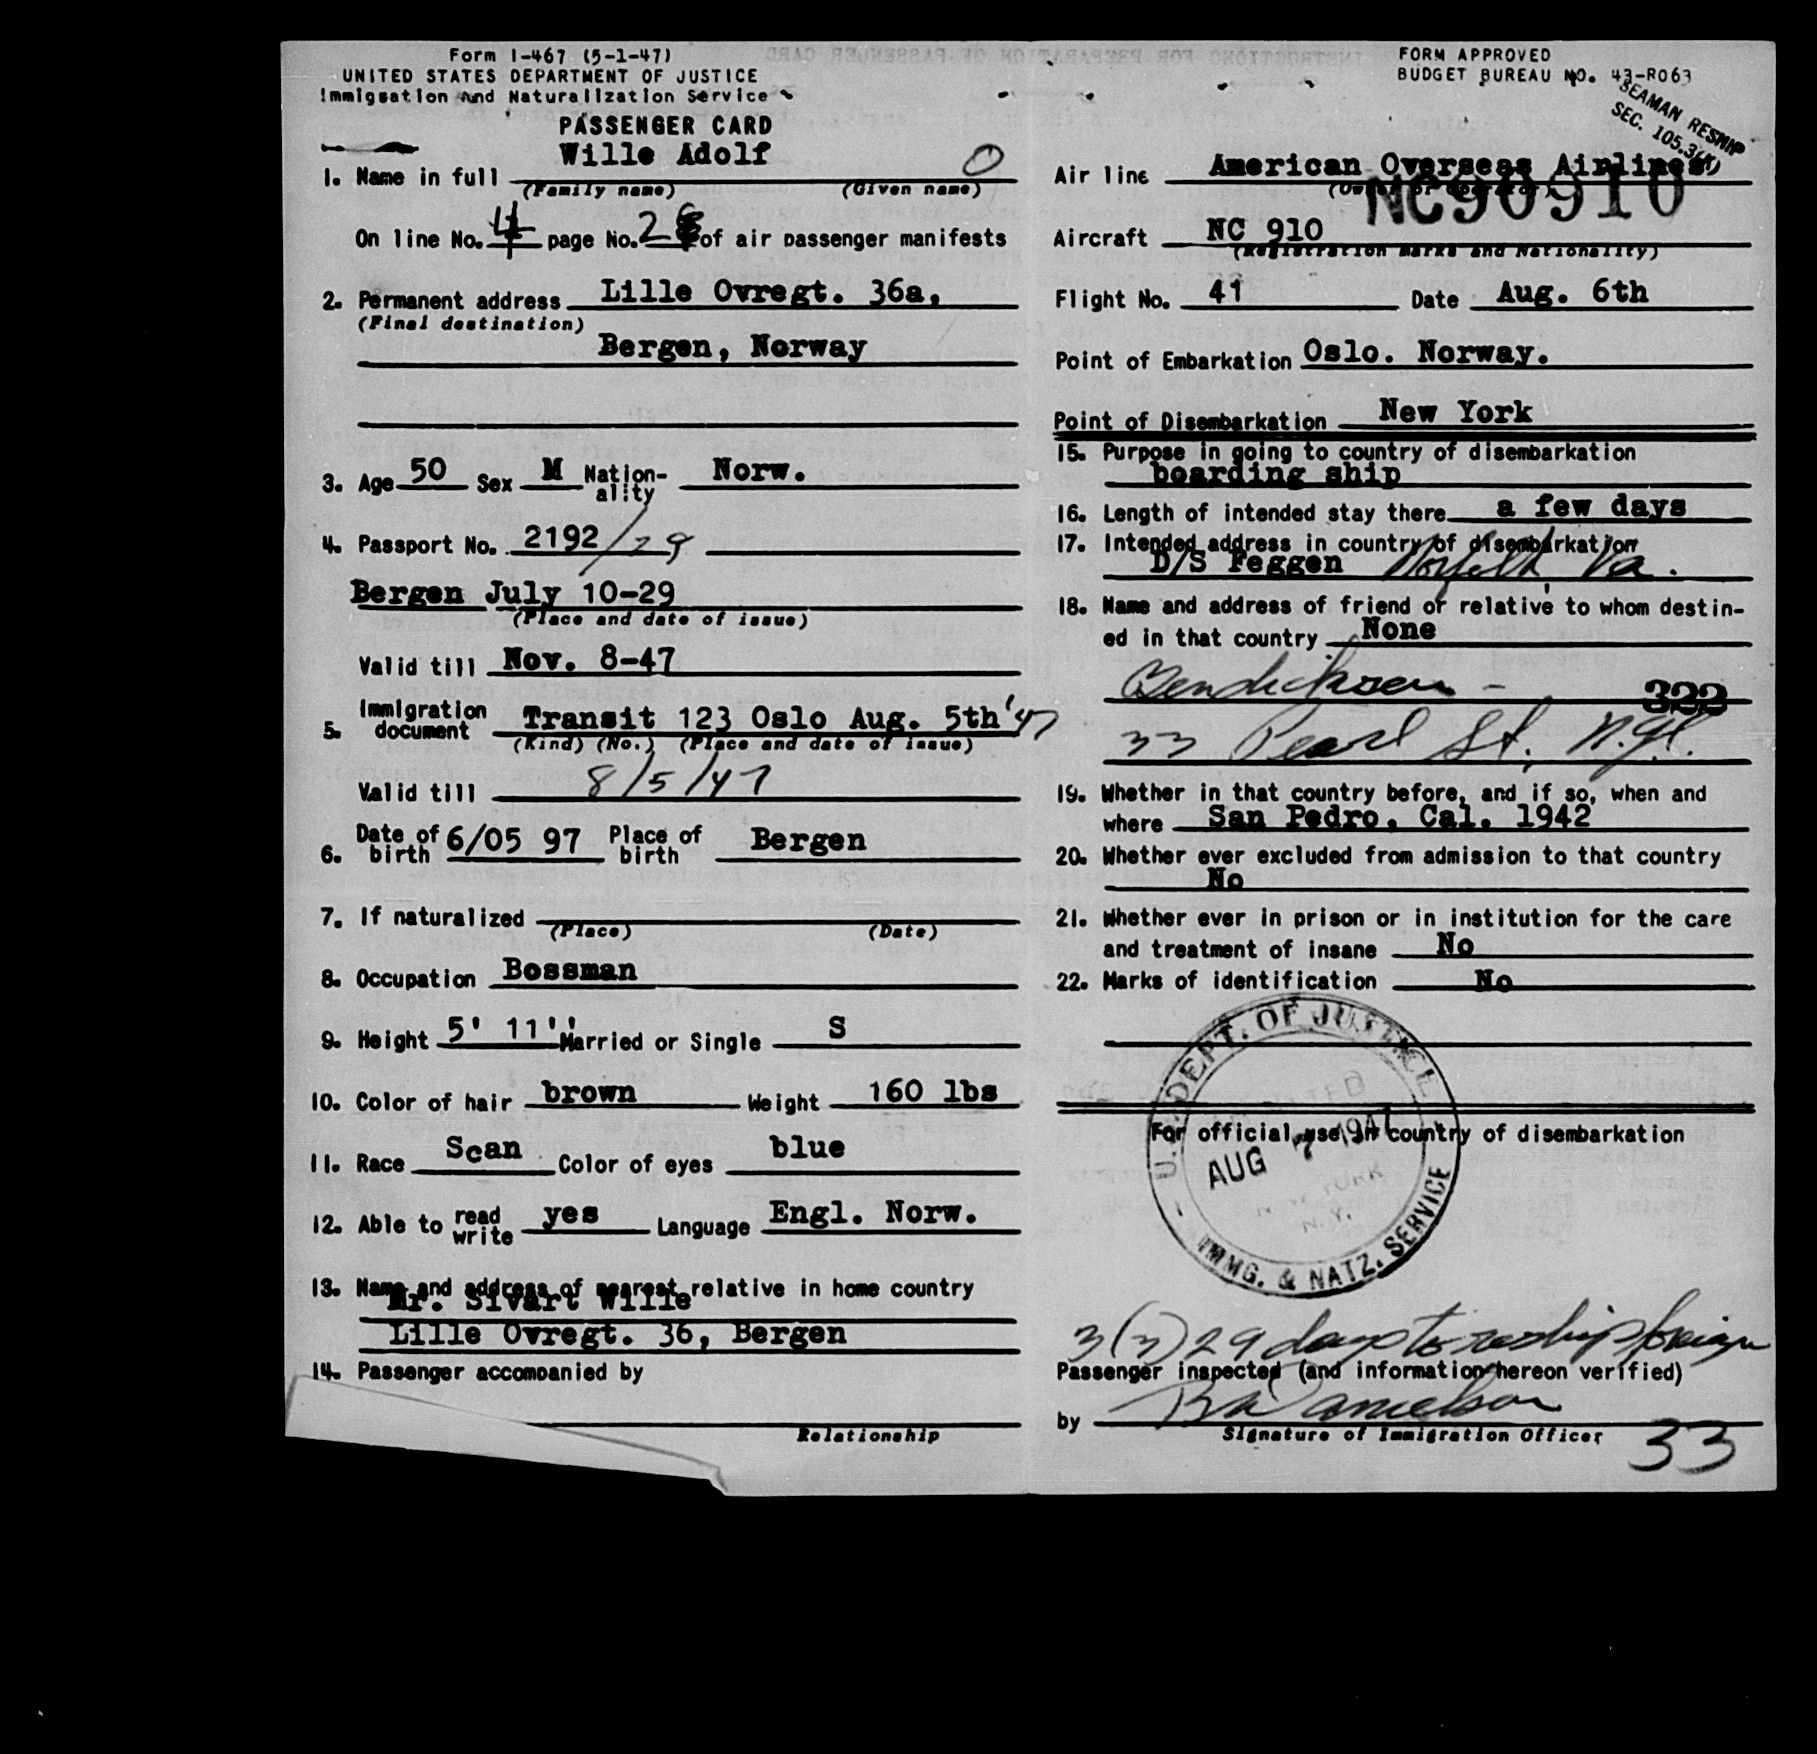 Form I-467 (5-1-47)
UNITED STATES DEPARTMENT OF JUSTICE
Immigsation And Naturalization Service
PASSENGER CARD
1. Name in full Wille Adolf O
(Family name) (Given name)
On line No. 4 page No. 2 of air passenger manifests
2. Permanent address Lille Ovregt. 36a,
(Final destination)
Bergen, Norway
3. Age 50 Sex M Nation-ality Norw.
4. Passport No. 2192/29
Bergen July 10-29
(Place and date of issue)
Valid till Nov. 8-47
5. Immigration document Transit 123 Oslo Aug. 5th '47
(Kind) (No.) (Place and date of issue)
Valid till 8/5/47
6. Date of birth 6/05 97 Place of birth Bergen
7. If naturalized
(Place) (Date)
8. Occupation Bossman
9. Height 5' 11'' Married or Single S
10. Color of hair brown Weight 160 lbs
11. Race Scan Color of eyes blue
12. Able to read write yes Language Engl. Norw.
13. Name and address of nearest relative in home country
Mr. Sivart Wille
Lille Ovregt. 36, Bergen
14. Passenger accompanied by
Relationship
FORM APPROVED
BUDGET BUREAU NO. 43-R063
SEAMAN RESHIP
SEC. 105.3(K)
Air line American Overseas Airlines
(Owner or operator)
NC90910
Aircraft NC 910
(Registration marks and Nationality)
Flight No. 41 Date Aug. 6th
Point of Embarkation Oslo. Norway.
Point of Disembarkation New York
15. Purpose in going to country of disembarkation
boarding ship
16. Length of intended stay there a few days
17. Intended address in country of disembarkation
D/S Feggen Norfolk, Va.
18. Name and address of friend or relative to whom destin-
ed in that country None
Bendicksen - 323
33 Pearl St, N.Y.
19. Whether in that country before, and if so, when and
where San Pedro, Cal. 1942
20. Whether ever excluded from admission to that country
No
21. Whether ever in prison or in institution for the care
and treatment of insane No
22. Marks of identification No
For official use in country of disembarkation
U.S. DEPT. OF JUSTICE
ADMITTED
AUG 7 1947
NEW YORK
N.Y.
IMMG. & NATZ. SERVICE
3(3) 29 days to reship foreign
Passenger inspected (and information hereon verified)
by Danielson
Signature of Immigration Officer
33